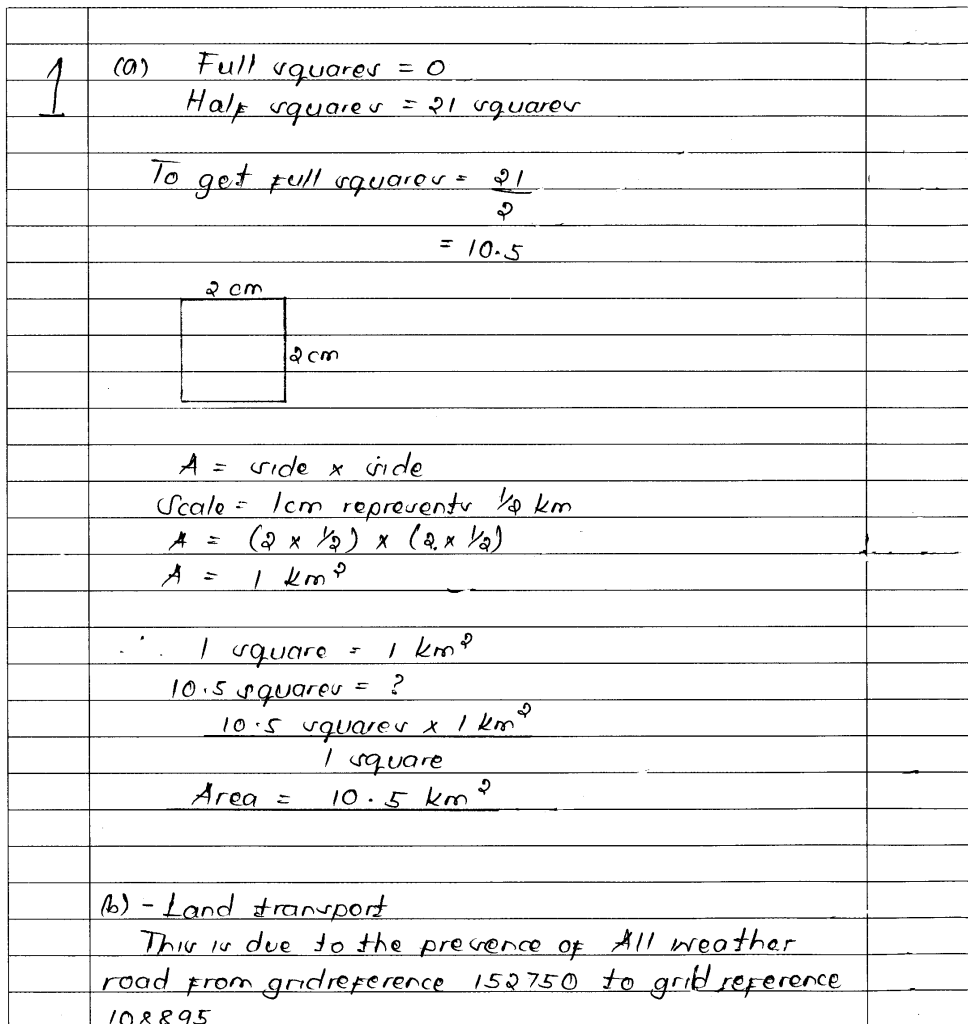 1 (a) Full squares = 0
Half squares = 21 squares
To get full squares = 21/2
= 10.5
2 cm
2 cm
A = side x side
Scale = 1cm represents 1/2 km
A = (2 x 1/2) x (2 x 1/2)
A = 1 km²
∴ 1 square = 1 km²
10.5 squares = ?
10.5 squares x 1 km²
1 square
Area = 10.5 km²
(b) - Land transport
This is due to the presence of All weather
road from gridreference 152750 to grid reference
108895